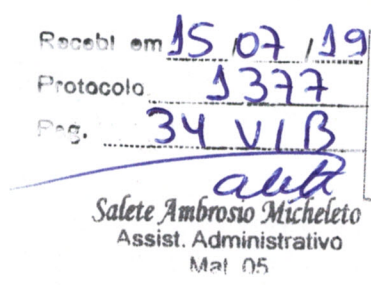 Recebi em 15 / 07 / 19
Protocolo 1377
Pag. 34 V I B
Salete Ambrosio Micheleto
Assist. Administrativo
Mat. 05